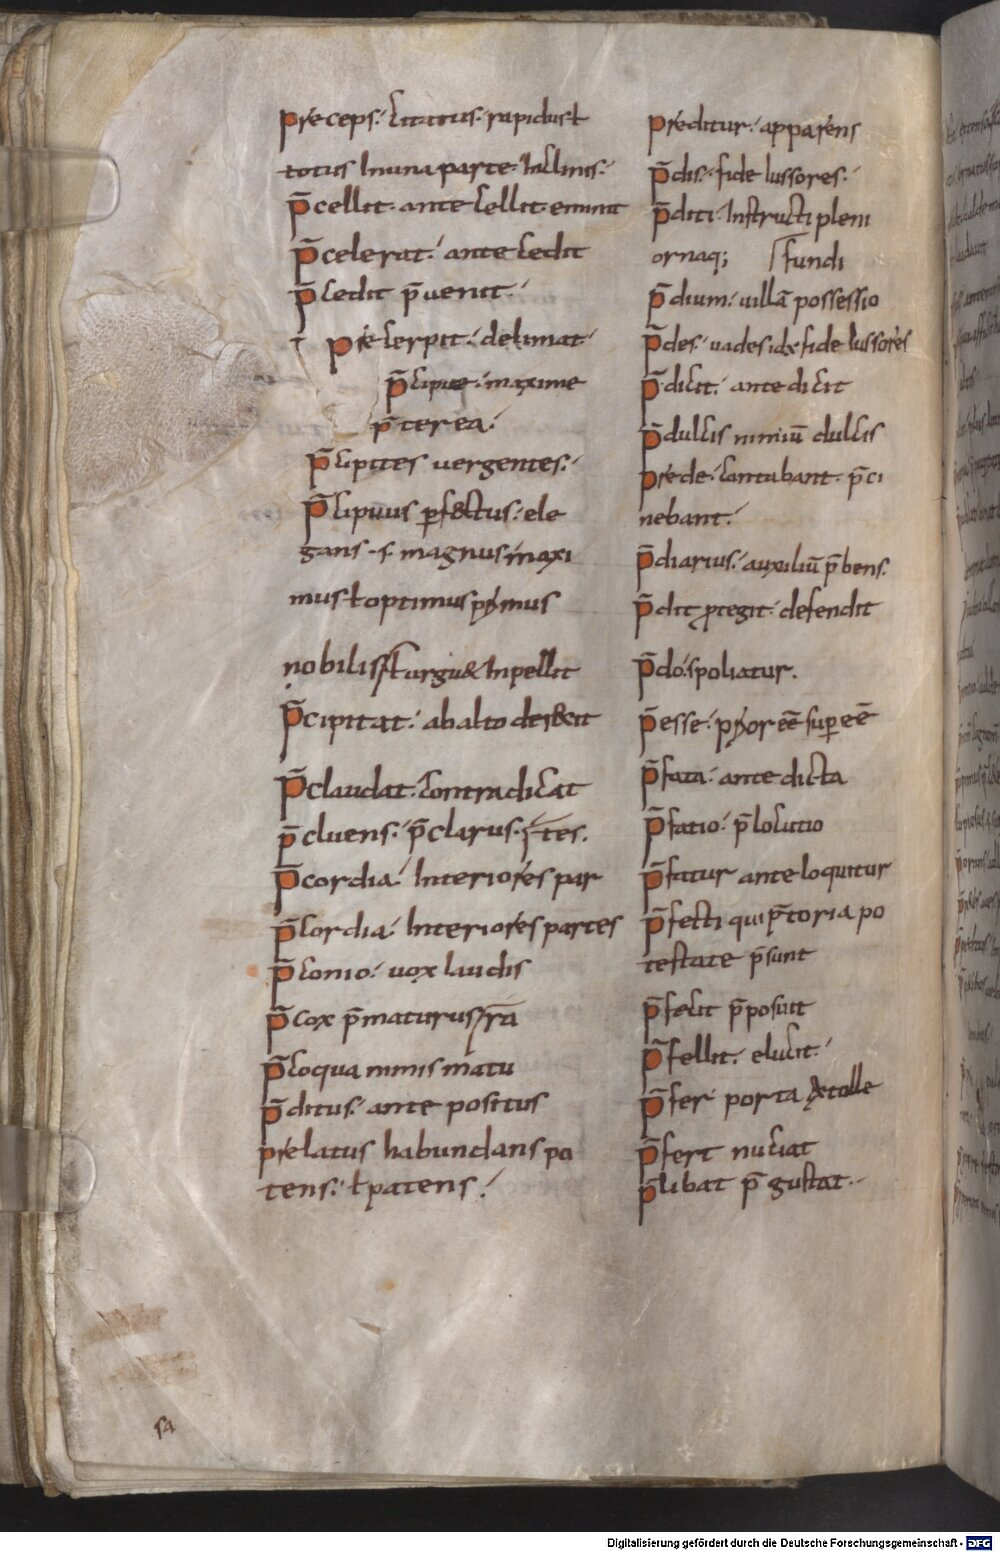 preceps· citatus· rapidus ł
totus inuna parte· inclinis·
p̄cellit· ante cellit· eminit
p̄celerat· ante cedit
p̄cedit p̄uenit·
precerpit· delimat·
p̄cipue· maxime
p̄terea·
p̄cipites uergentes·
p̄cipuus ꝑfectus· ele
gans ·s· magnus maxi
mus ł optimus primus
nobilis urgu& inpellit
p̄cipitat· abalto deiecit
p̄claudat· contradicat
p̄cluens· p̄clarus·
p̄cordia· Interiores par
p̄cordia· Interiores partes
p̄conio· uox laudis
p̄cox p̄maturus
p̄coqua nimis matu
p̄ditus· ante positus
prelatus habundans po
tens· ł patens·
preditur· apparens
p̄dis· fide iussores·
p̄diti· Instructi pleni
ornaq; fundi
p̄dium· uilla possessio
p̄des· uades id÷ fide iussores
p̄dicit· ante dicit
p̄dulcis nimiū dulcis
prede· cantabant· p̄ci
nebant·
p̄diarius· auxiliū p̄bens·
p̄dit ꝓtegit· defendit
p̄do· spoliatur·
p̄esse· prior eē suꝑ eē
p̄fata· ante dicta
p̄fatio· p̄locutio
p̄fatur ante loquitur
p̄fecti qui p̄toria po
testate p̄sunt
p̄fecit p̄posuit
p̄fellit· elicit·
p̄fer porta extolle
p̄fert nuciat
p̄libat p̄ gustat·
Digitalisierung gefördert durch die Deutsche Forschungsgemeinschaft - DFG